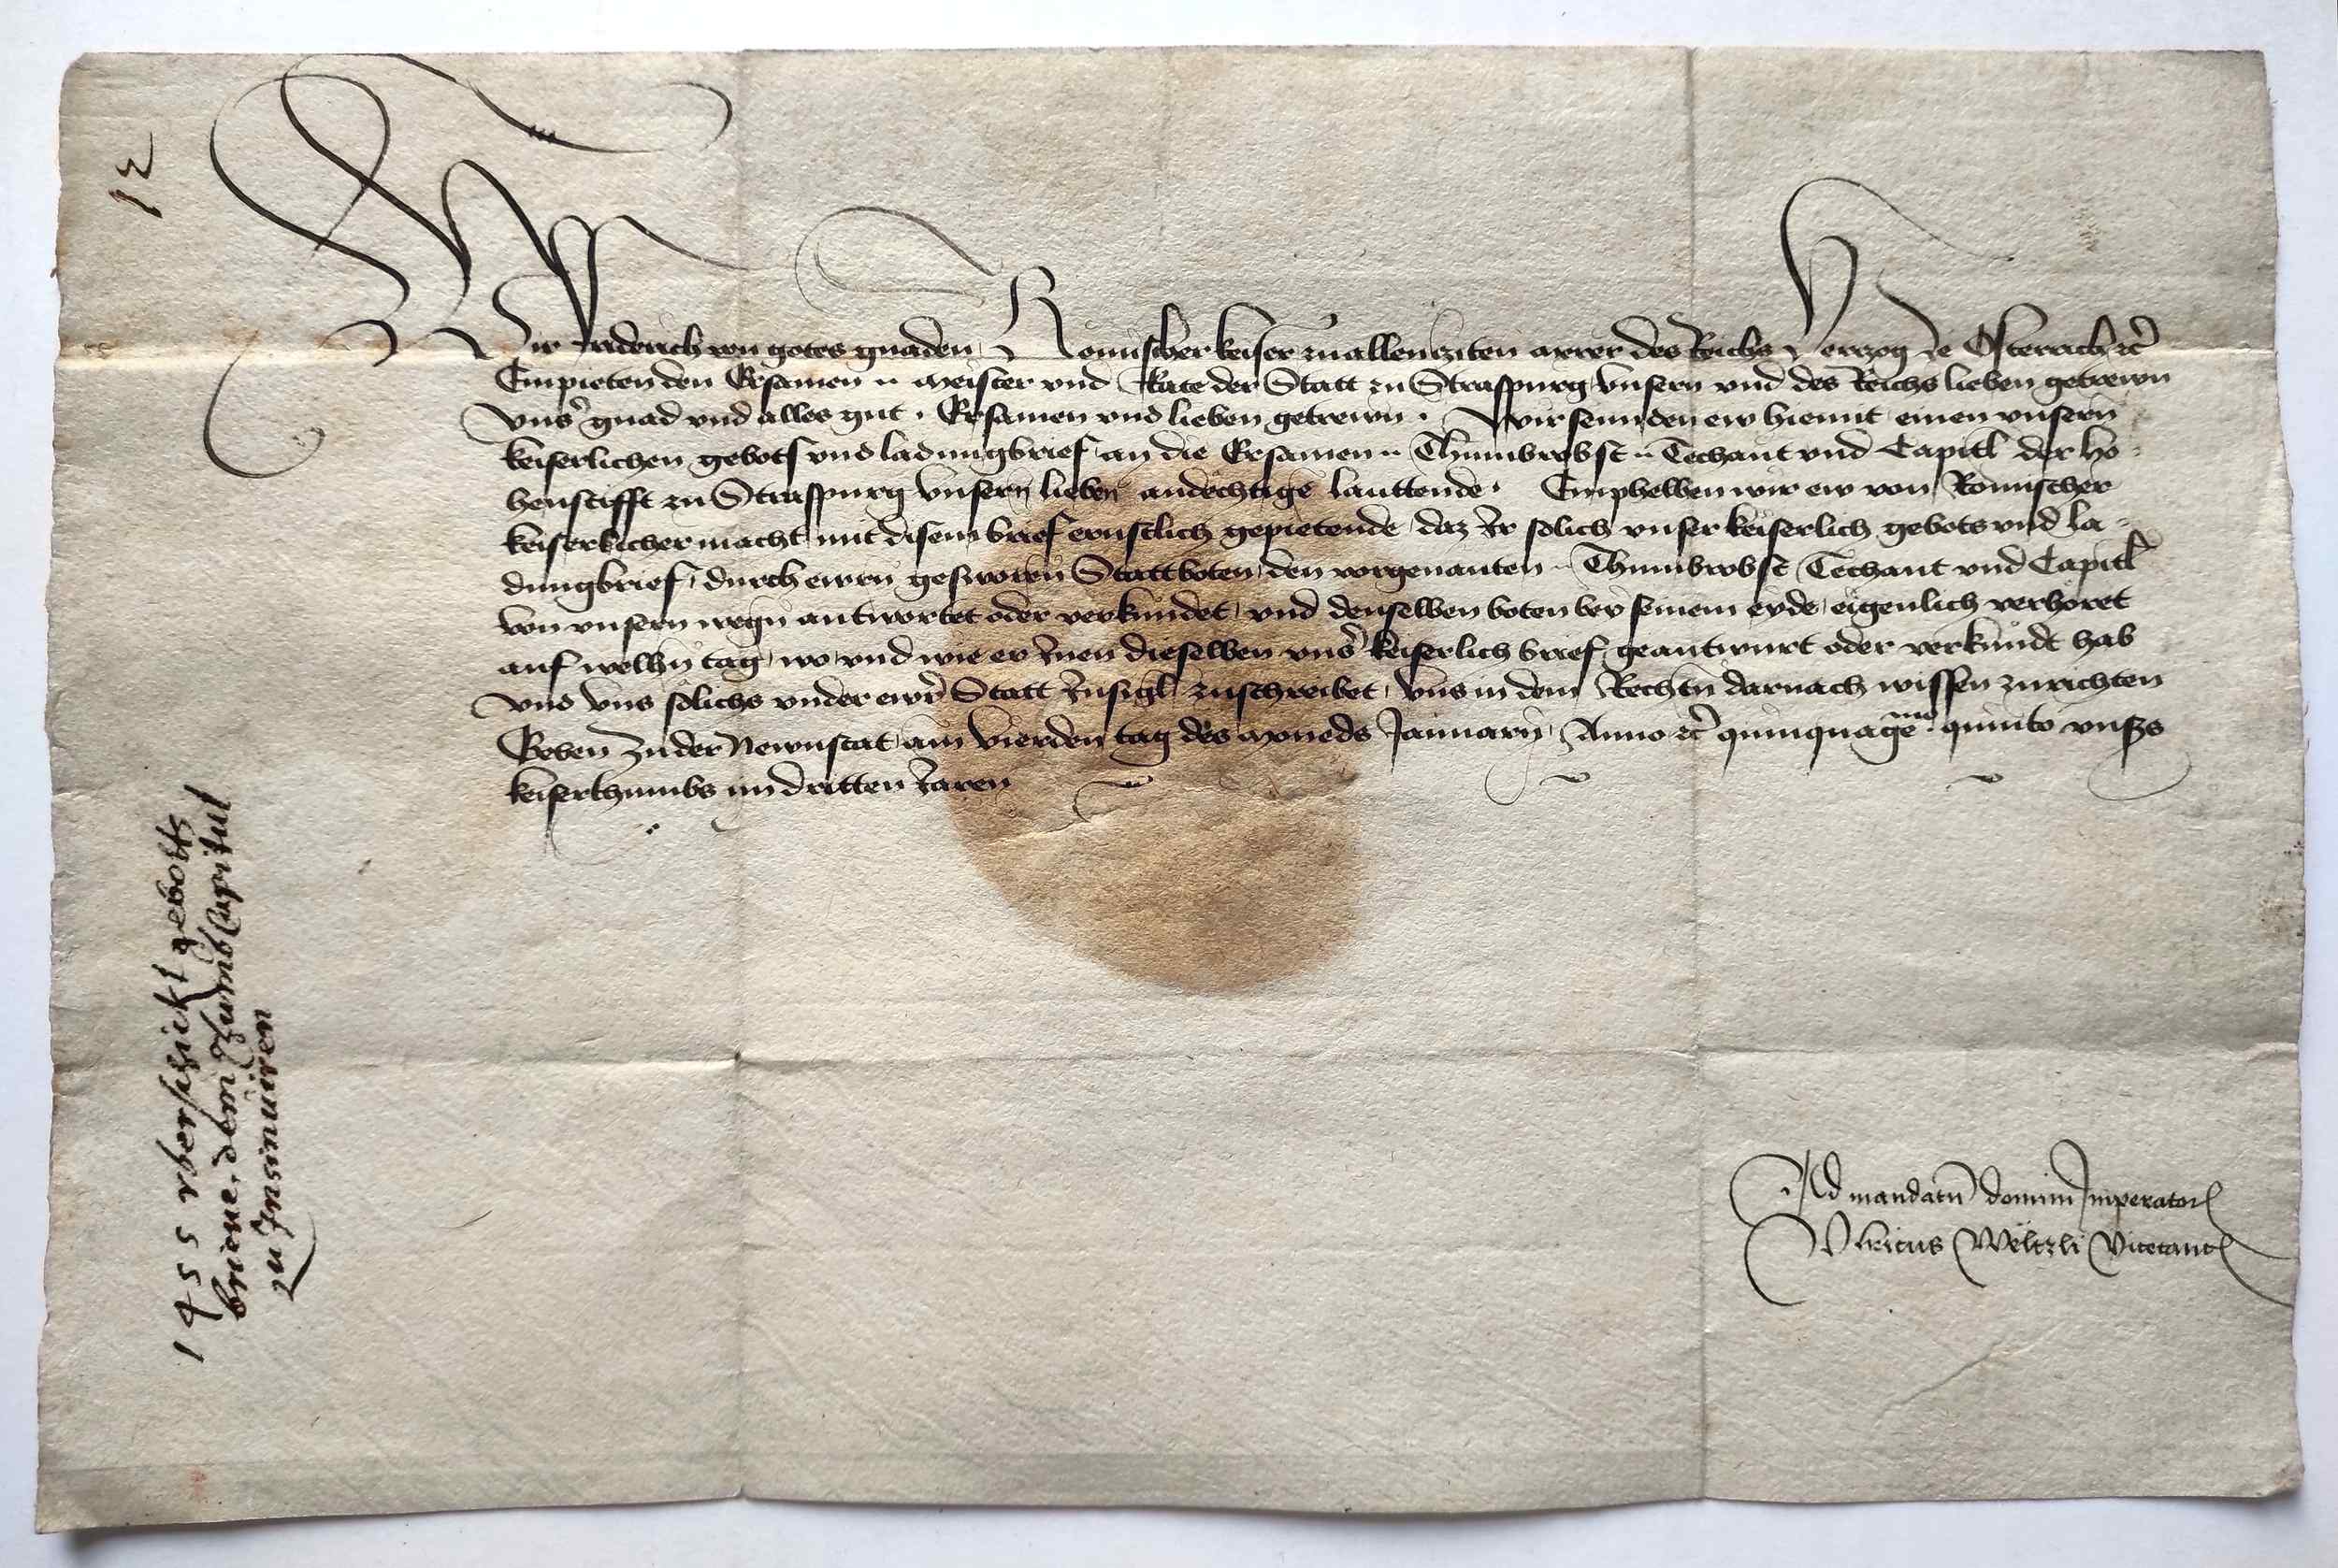 Wir Fridrich von gotes gnaden Romischer keiser zuallennziten merer des Reichs Herczog ze Osterreich etc̃
Empieten den Ersamen .. meister vnd Rate der Statt zu Straspurg vnsern vnd des Reichs lieben getrewn
vnsẽr gnad vnd alles gut . Ersamen vnd lieben getrewn . Wir sennden ew hiemit einen vnsern
keiserlichen gebots vnd ladungbrief an die Ersamen .. Thumbrobst .. Techant vnd Capitl der ho-
henstifft zu Straspurg vnsern lieben andechtigẽ lauttende . Emphelhen wir ew von Romischer
keiserlicher macht mit disem brief ernstlich gepietende daz Ir solich vnser keiserlich gebots vnd la-
dungbrief durch ewrn gesworn Stattboten den vorgenanten .. Thumbrobst Techant vnd Capitl
von vnsern wegñ antwortet oder verkundet vnd denselben boten bey seinem eyde eigenlich verhöret
auf welhñ tag wo vnd wie er Inen dieselben vnsẽr keiserlich brief geantwurt oder verkündt hab
vnd vns solichs vnder ewr̃ Statt Insigl zuschreibet vns in dem Rechtñ darnach wissen zurichten
Geben zu der Newnstat am Vierden tag des moneds January Anno etc̃ quinquagẽᵐᵒ quinto vnsßs
keiserthumbs im dritten Jaren
Ad mandatũ domini Imperator
Vlricus Wëltzli Vicecanc
1455 vberschickt gebotts
brieue, dem Thumb Capitul
zu Insinuiren
12